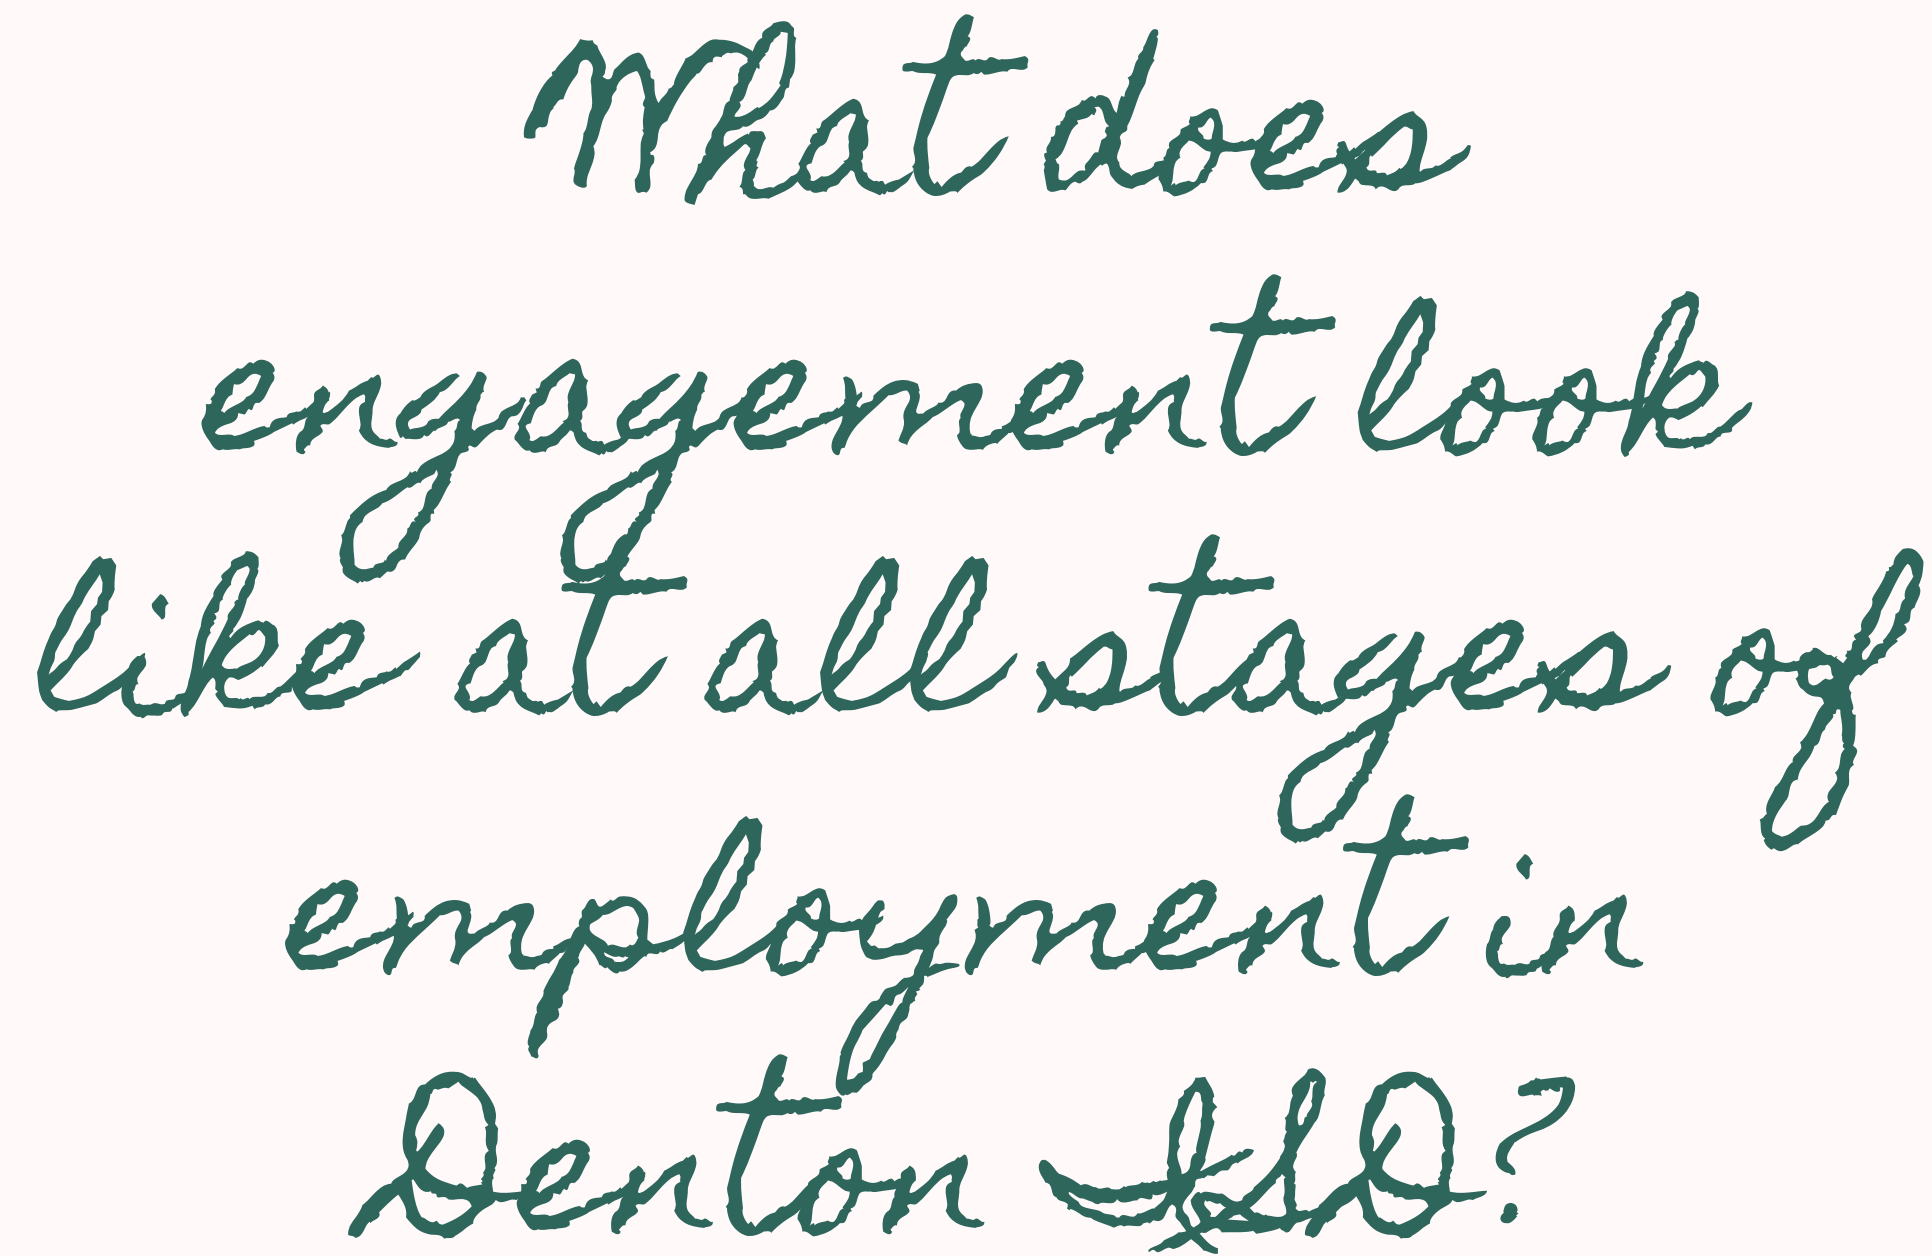 What does
engagement look
like at all stages of
employment in
Denton ISD?